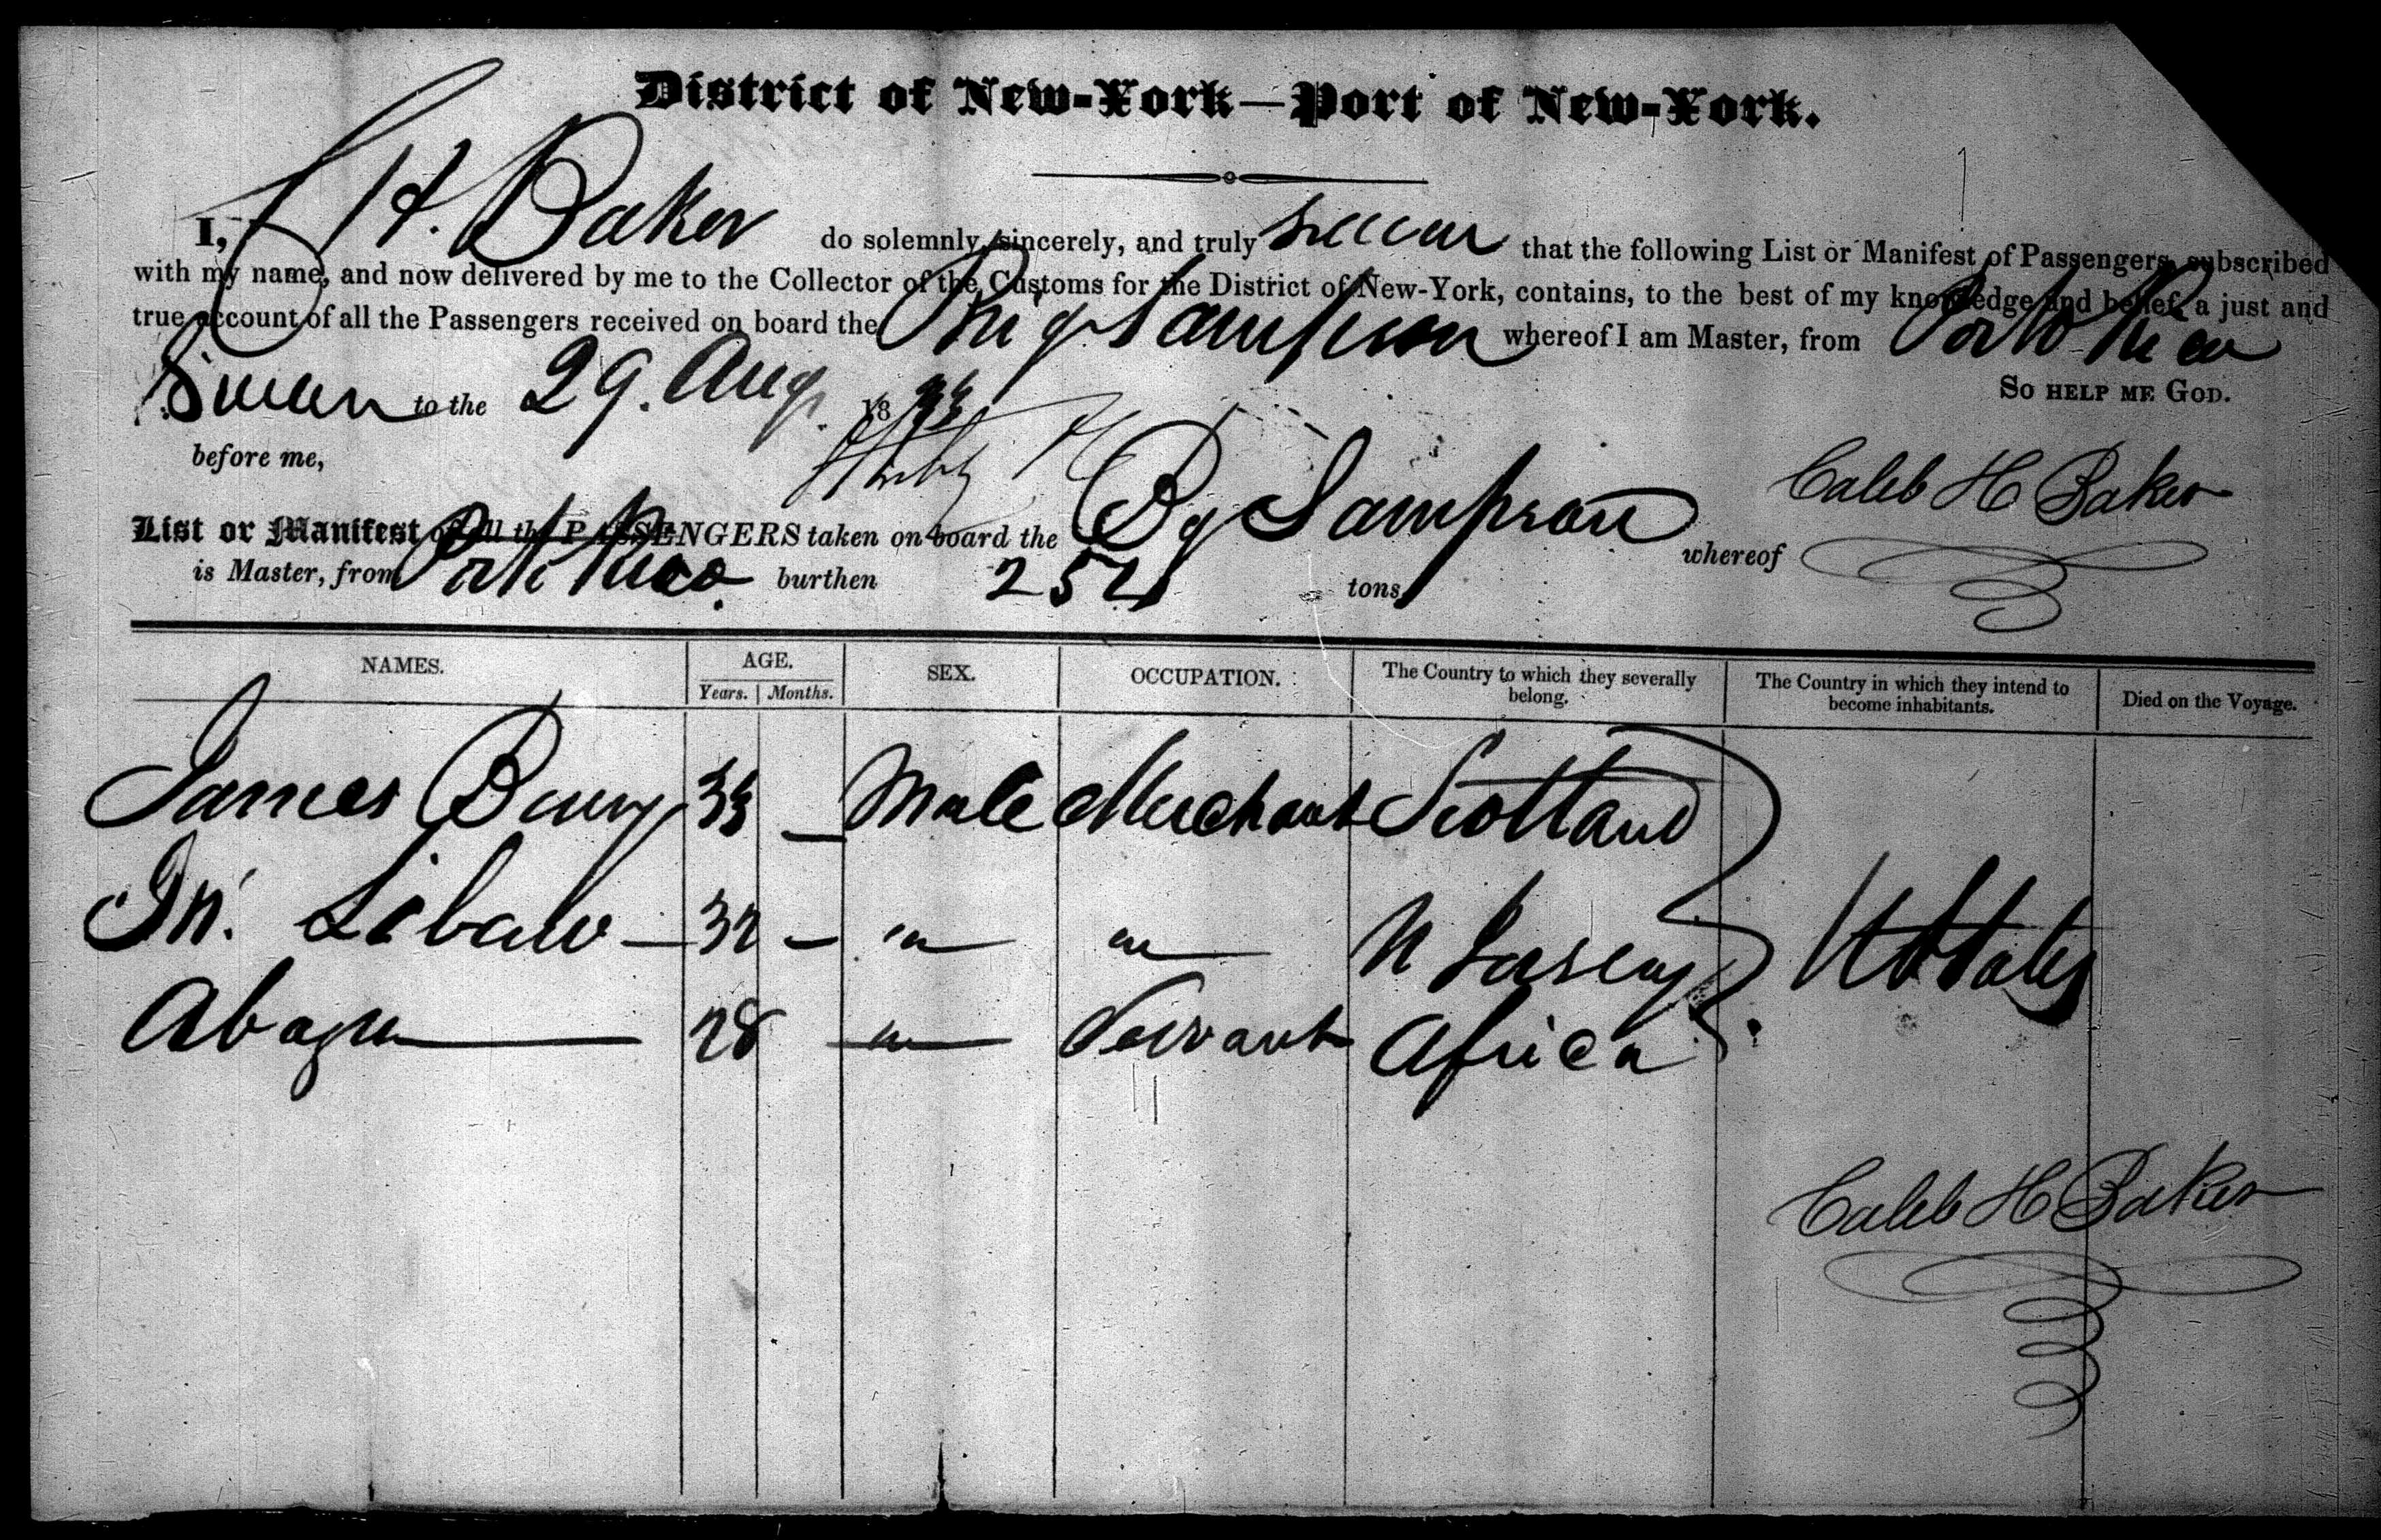 District of New-York—Port of New-York.
I, C H. Baker do solemnly, sincerely, and truly swear that the following List or Manifest of Passengers, subscribed
with my name, and now delivered by me to the Collector of the Customs for the District of New-York, contains, to the best of my knowledge and belief, a just and
true account of all the Passengers received on board the Brig Sampson whereof I am Master, from Porto Rico
Sworn to the 29. Aug. 18
So HELP ME GOD.
before me,
Caleb H Baker
List or Manifest of all the PASSENGERS taken on board the Bg Sampson whereof
is Master, from Porto Rico. burthen 254 tons,
NAMES. AGE. SEX. OCCUPATION. The Country to which they severally belong. The Country in which they intend to become inhabitants. Died on the Voyage.
Years. Months.
James 33 — Male Merchant Scotland
Jn. Libaw — 32 — " " N Jersey U States
28 " Servant Africa
Caleb H Baker